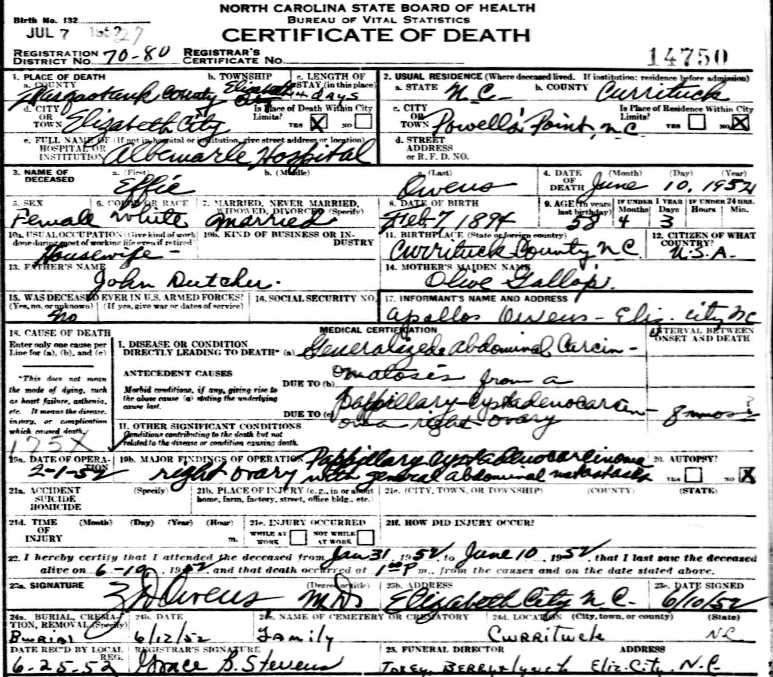 NORTH CAROLINA STATE BOARD OF HEALTH
Birth No. 132
BUREAU OF VITAL STATISTICS
JUL 7 1952 27
CERTIFICATE OF DEATH
REGISTRATION DISTRICT NO. 70-80 REGISTRAR'S CERTIFICATE NO. 14750
1. PLACE OF DEATH
a. COUNTY Pasquotank County
b. TOWNSHIP Elizabeth City
c. LENGTH OF STAY (in this place) 4 days
2. USUAL RESIDENCE (Where deceased lived. If institution: residence before admission)
a. STATE N.C. b. COUNTY Currituck
d. CITY OR TOWN Elizabeth City
Is Place of Death Within City Limits? YES X NO
c. CITY OR TOWN Powells Point, N.C.
Is Place of Residence Within City Limits? YES NO X
e. FULL NAME OF (If not in hospital or institution, give street address or location) HOSPITAL OR INSTITUTION Albemarle Hospital
d. STREET ADDRESS OR R. F. D. NO.
3. NAME OF DECEASED a. (First) Effie b. (Middle) (Last) Owens
4. DATE OF DEATH (Month) (Day) (Year) June 10, 1952
5. SEX Female
6. COLOR OR RACE White
7. MARRIED, NEVER MARRIED, WIDOWED, DIVORCED (Specify) married
8. DATE OF BIRTH Feb 7 1894
9. AGE (In years last birthday) 58 IF UNDER 1 YEAR Months 4 Days 3 IF UNDER 24 HRS. Hours Min.
10a. USUAL OCCUPATION (Give kind of work done during most of working life even if retired) Housewife
10b. KIND OF BUSINESS OR INDUSTRY
11. BIRTHPLACE (State or foreign country) Currituck County N.C.
12. CITIZEN OF WHAT COUNTRY? U.S.A.
13. FATHER'S NAME John Dutcher
14. MOTHER'S MAIDEN NAME Olive Gallop
15. WAS DECEASED EVER IN U.S. ARMED FORCES? (Yes, no, or unknown) (If yes, give war or dates of service) no
16. SOCIAL SECURITY NO.
17. INFORMANT'S NAME AND ADDRESS Apallos Owens - Eliz. City NC
18. CAUSE OF DEATH
Enter only one cause per line for (a), (b), and (c)
MEDICAL CERTIFICATION
INTERVAL BETWEEN ONSET AND DEATH
I. DISEASE OR CONDITION DIRECTLY LEADING TO DEATH* (a) Generalized Abdominal Carcin-
*This does not mean the mode of dying, such as heart failure, asthenia, etc. It means the disease, injury, or complication which caused death.
175X
ANTECEDENT CAUSES
Morbid conditions, if any, giving rise to the above cause (a) stating the underlying cause last.
DUE TO (b) omatosis from a
DUE TO (c) Pappillary Cystadenocarcin-
oma right ovary
8 mos ?
II. OTHER SIGNIFICANT CONDITIONS
Conditions contributing to the death but not related to the disease or condition causing death.
19a. DATE OF OPERATION 2-1-52
19b. MAJOR FINDINGS OF OPERATION Pappillary Cystadenocarcinoma
right ovary with general abdominal metastasis
20. AUTOPSY? YES NO X
21a. ACCIDENT SUICIDE HOMICIDE (Specify)
21b. PLACE OF INJURY (e. g., in or about home, farm, factory, street, office bldg., etc.)
21c. (CITY, TOWN, OR TOWNSHIP) (COUNTY) (STATE)
21d. TIME OF INJURY (Month) (Day) (Year) (Hour) m.
21e. INJURY OCCURRED WHILE AT WORK NOT WHILE AT WORK
21f. HOW DID INJURY OCCUR?
22. I hereby certify that I attended the deceased from Jan 31, 1952, to June 10, 1952 that I last saw the deceased
alive on 6-10, 1952 and that death occurred at P m., from the causes and on the date stated above.
23a. SIGNATURE Owens (Degree or title) M.D.
23b. ADDRESS Elizabeth City N.C.
23c. DATE SIGNED 6/10/52
24a. BURIAL, CREMATION, REMOVAL (Specify) Burial
24b. DATE 6/12/52
24c. NAME OF CEMETERY OR CREMATORY Family
24d. LOCATION (City, town, or county) (State) Currituck NC
DATE REC'D BY LOCAL REG. 6-25-52
REGISTRAR'S SIGNATURE Grace B. Stevens
25. FUNERAL DIRECTOR ADDRESS Berry Lynch Eliz. City, N.C.